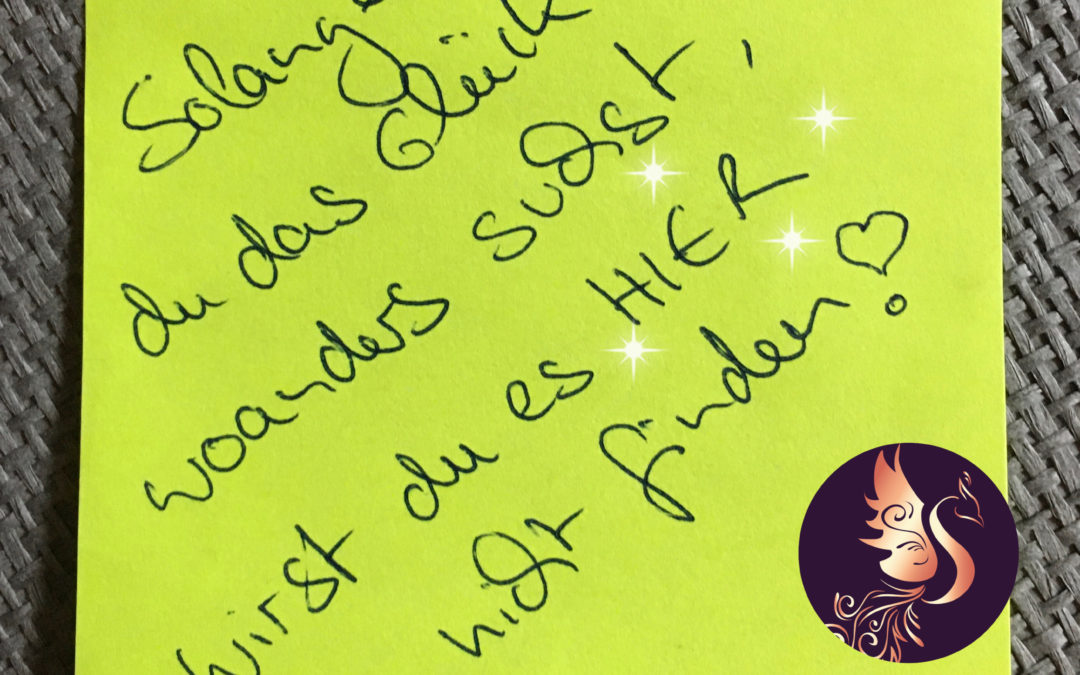 Solange
du das Glück
woanders suchst,
wirst du es HIER
nicht finden!